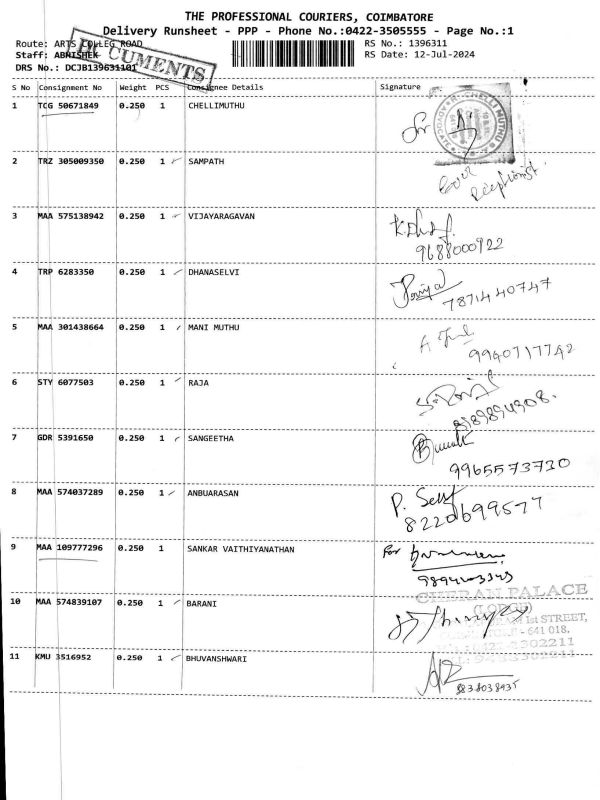 THE PROFESSIONAL COURIERS, COIMBATORE
Delivery Runsheet - PPP - Phone No.:0422-3505555 - Page No.:1
Route: ARTS COLLEG ROAD
RS No.: 1396311
Staff: ABHISHEK
RS Date: 12-Jul-2024
DRS No.: DCJB139631101
CUMENTS
S No Consignment No Weight PCS Consignee Details Signature
1 TCG 50671849 0.250 1 CHELLIMUTHU
CHELLI MUTHU
2 TRZ 305009350 0.250 1 SAMPATH
Receptionist
3 MAA 575138942 0.250 1 VIJAYARAGAVAN
9688000922
4 TRP 6283350 0.250 1 DHANASELVI
7871440747
5 MAA 301438664 0.250 1 MANI MUTHU
9940717742
6 STY 6077503 0.250 1 RAJA
7 GDR 5391650 0.250 1 SANGEETHA
9965573730
8 MAA 574037289 0.250 1 ANBUARASAN
8220699577
9 MAA 109777296 0.250 1 SANKAR VAITHIYANATHAN
For
CHERAN PALACE
10 MAA 574839107 0.250 1 BARANI
(LODGE)
1st STREET,
- 641 018.
3302211
11 KMU 3516952 0.250 1 BHUVANSHWARI